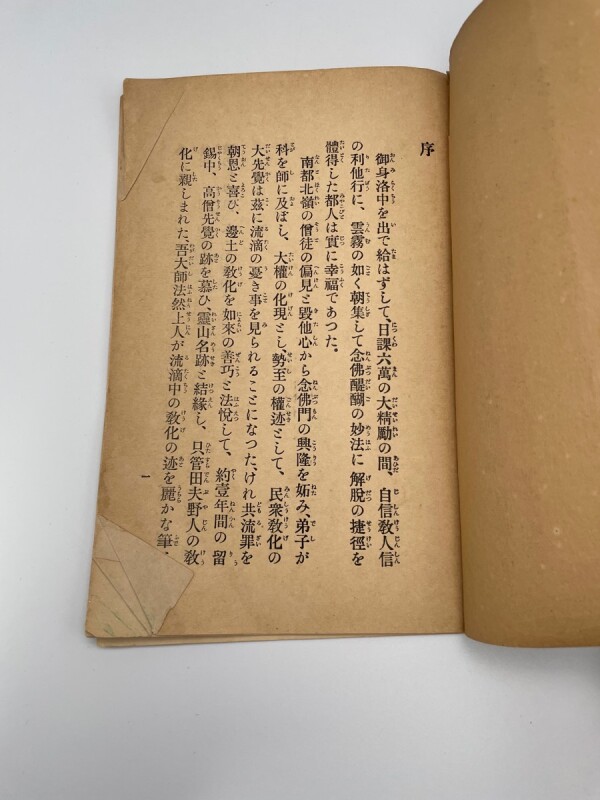 序
御身洛中を出で給はずして、日課六萬の大精勵の間、自信敎人信
の利他行に、雲霧の如く朝集して念佛醍醐の妙法に解脫の捷徑を
體得した都人は實に幸福であつた。
南都北嶺の僧徒の偏見と毀他心から念佛門の興隆を妬み、弟子が
科を師に及ぼし、大權の化現とし、勢至の權迹として、民衆敎化の
大先覺は玆に流滴の憂き事を見られることになつた、けれ共流罪を
朝恩と喜び、邊土の敎化を如來の善巧と法悅して、約壹年間の留
錫中、高僧先覺の跡を慕ひ、靈山名跡と結緣し、只管田夫野人の敎
化に親しまれた、吾大師法然上人が流滴中の敎化の迹を麗かな筆
一